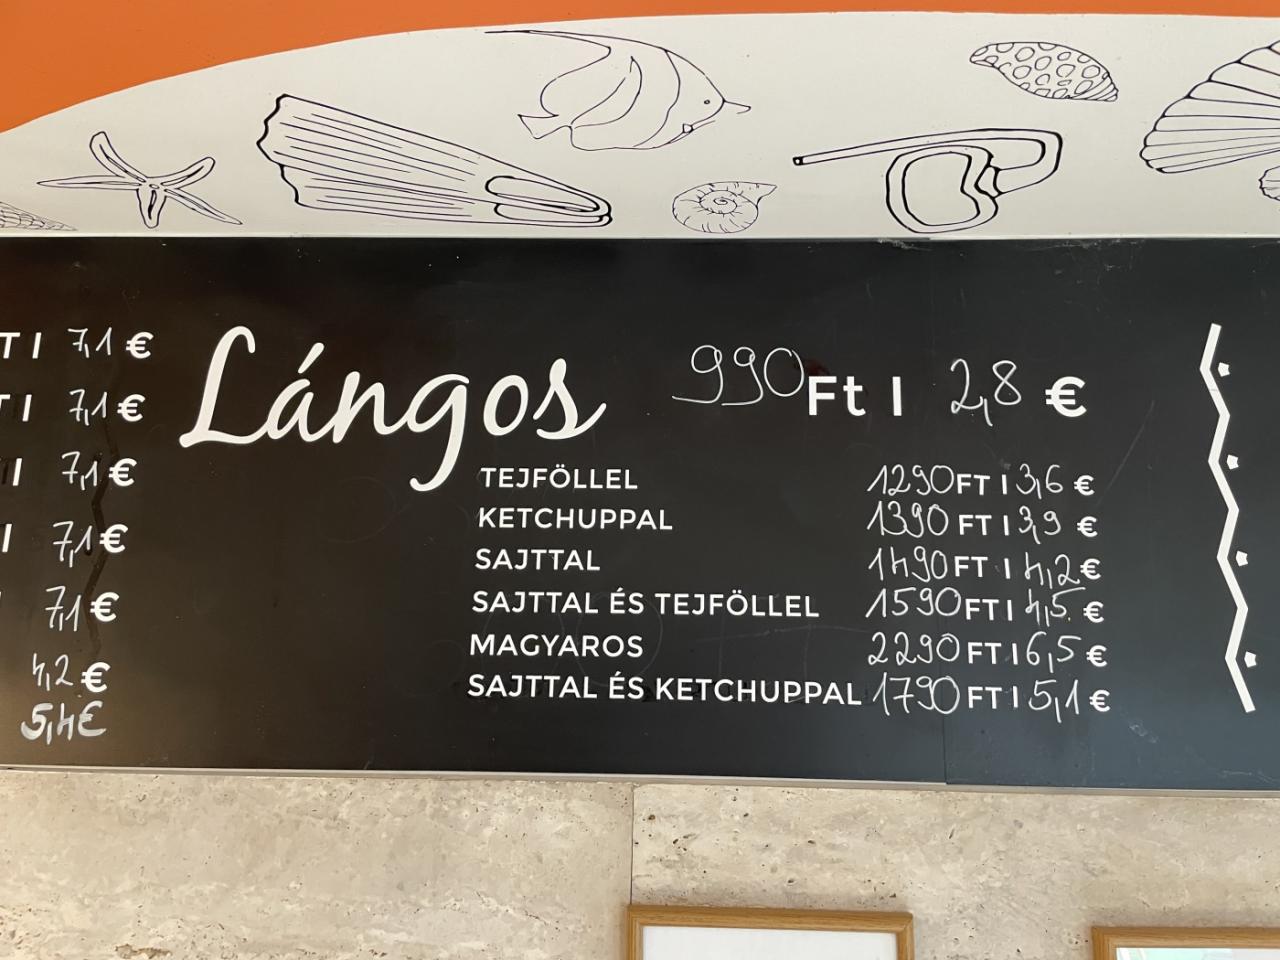 T I 7,1 €
T I 7,1 €
I 7,1 €
I 7,1 €
7,1 €
4,2 €
5,4 €
Lángos 990 Ft I 2,8 €
TEJFÖLLEL 1290 FT I 3,6 €
KETCHUPPAL 1390 FT I 3,9 €
SAJTTAL 1490 FT I 4,2 €
SAJTTAL ÉS TEJFÖLLEL 1590 FT I 4,5 €
MAGYAROS 2290 FT I 6,5 €
SAJTTAL ÉS KETCHUPPAL 1790 FT I 5,1 €